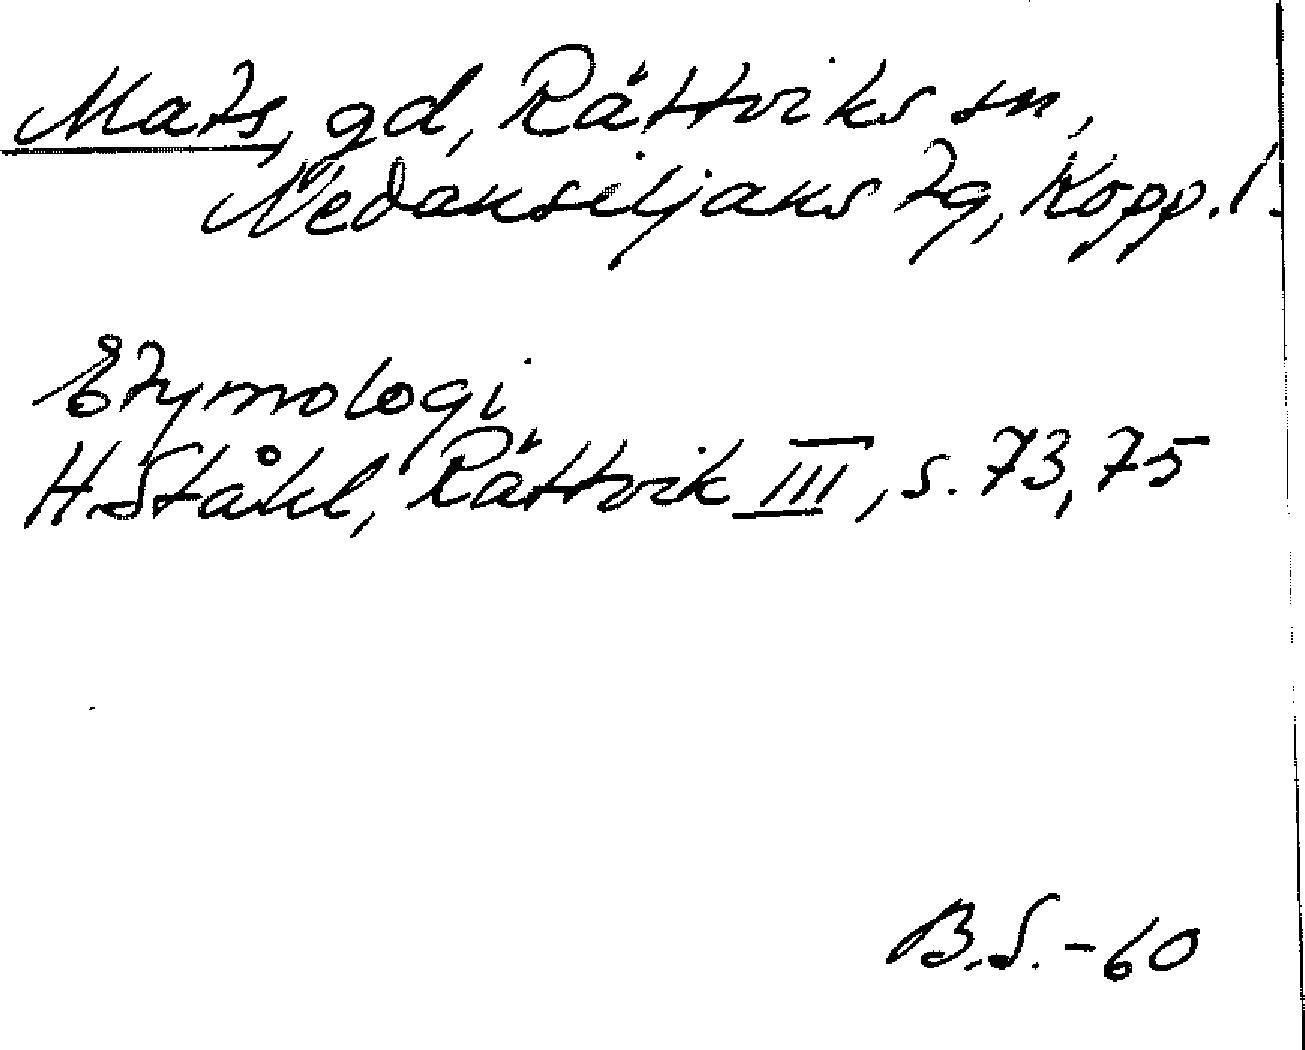 Mats, gd, Rättviks sn,
Nedansiljans tg, Kopp. l.
Etymologi
H. Ståhl, Rättvik III, s. 73, 75
B.S. - 60